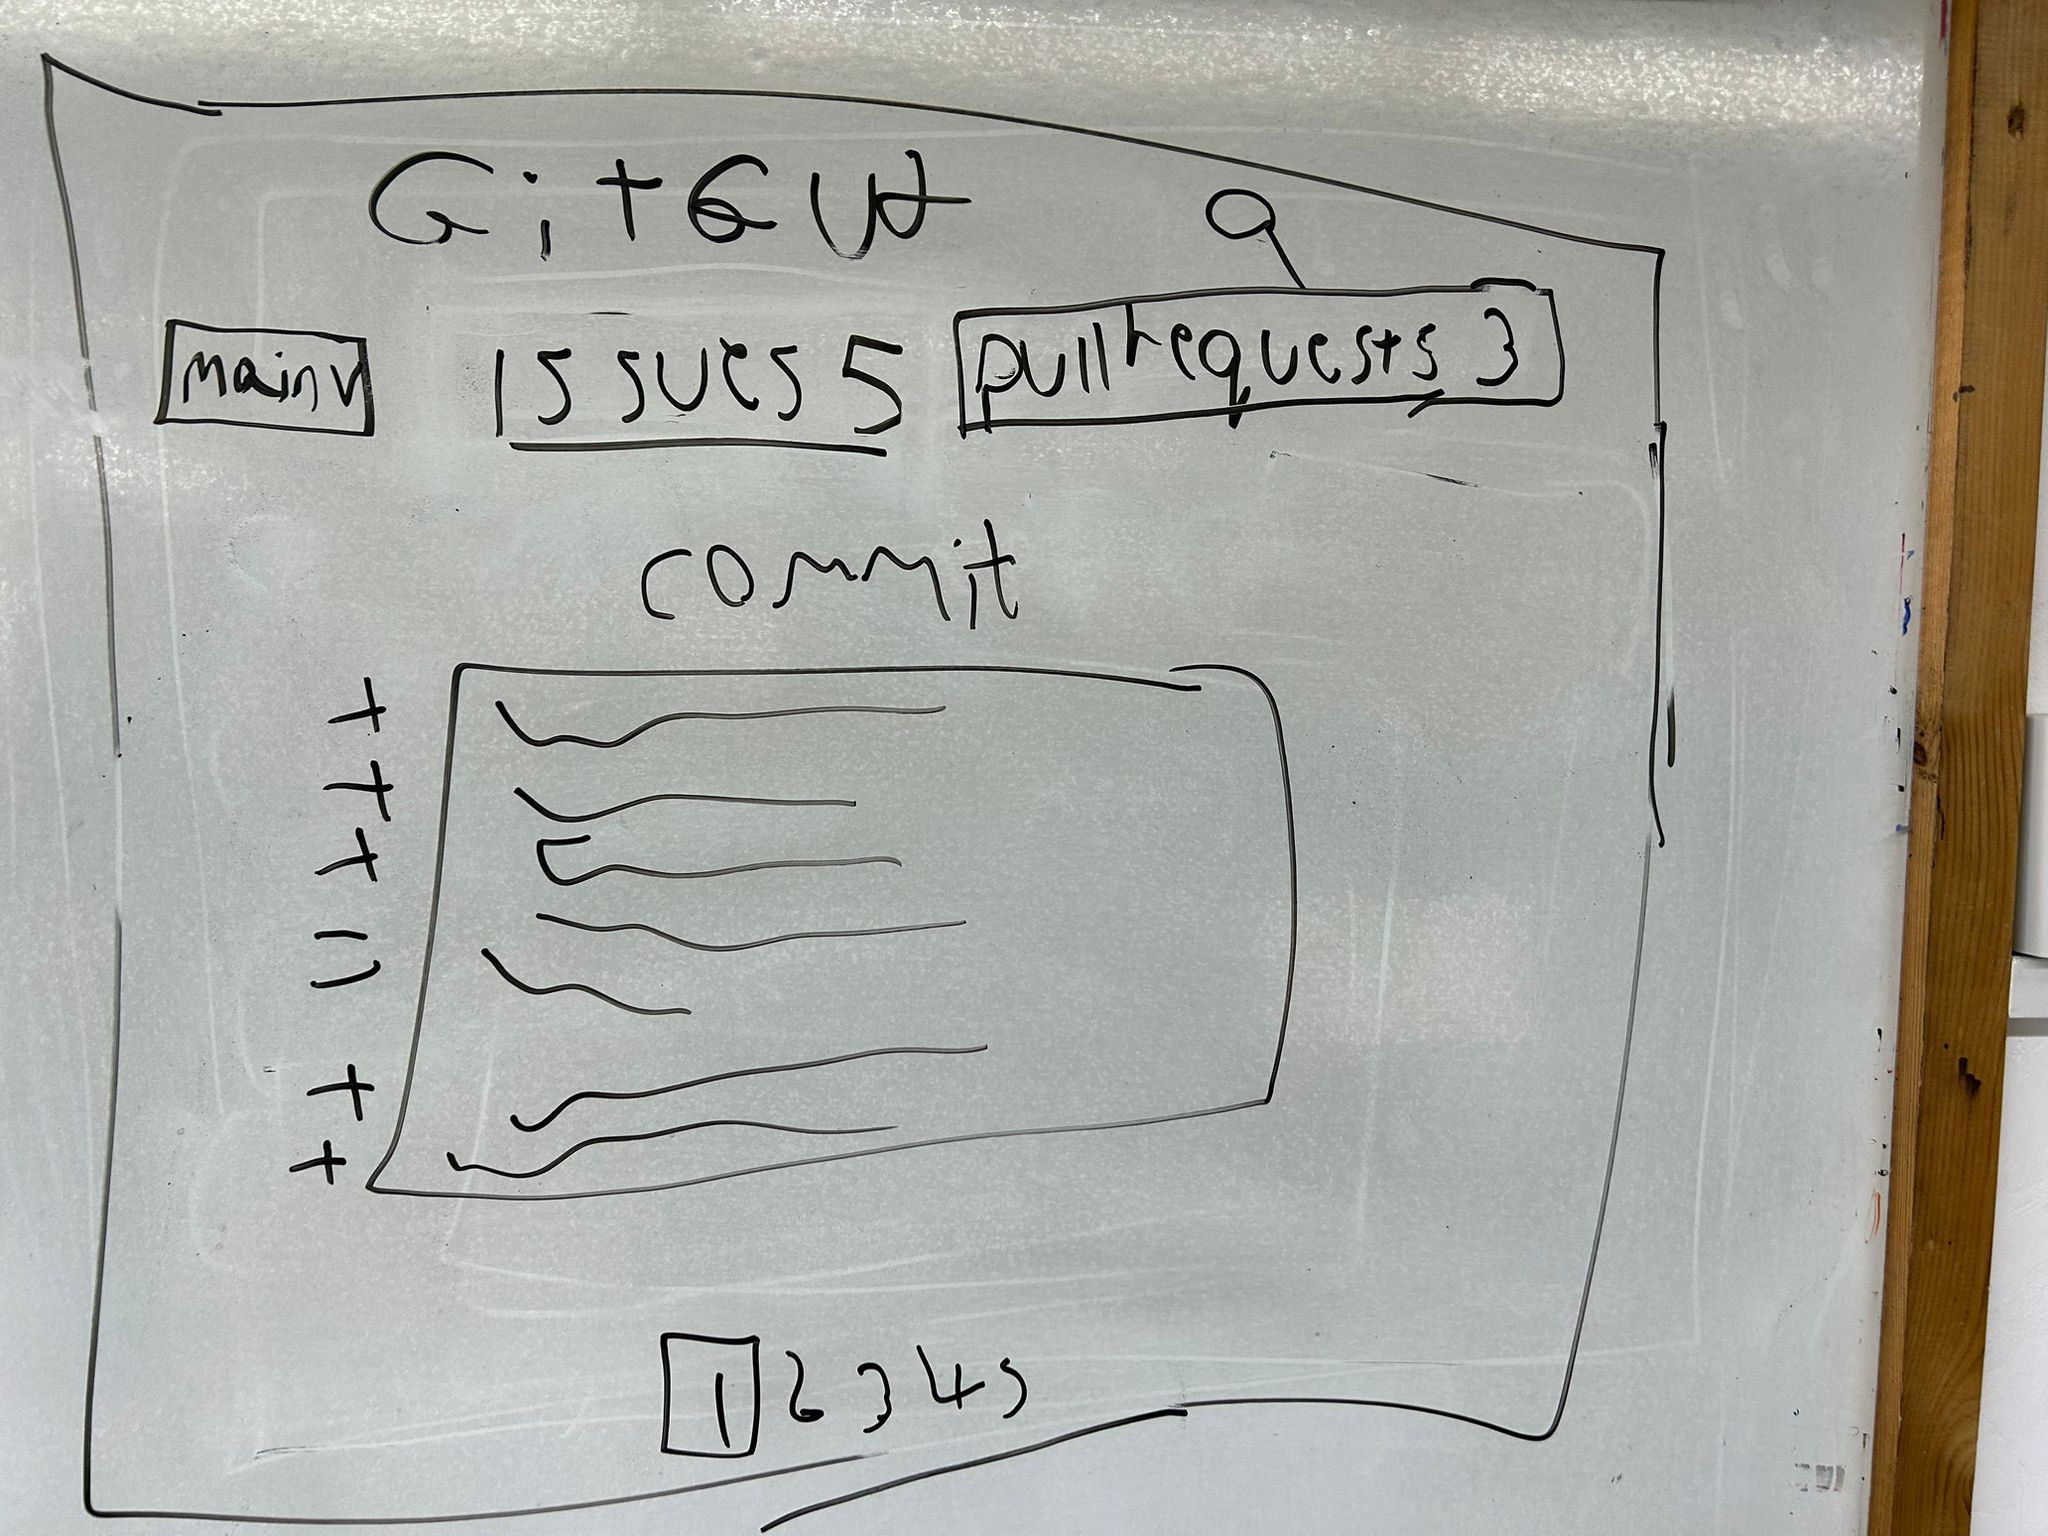 GitGut
main v
issues 5
pull requests 3
commit
+
+
+
-
-
+
+
1 2 3 4 5